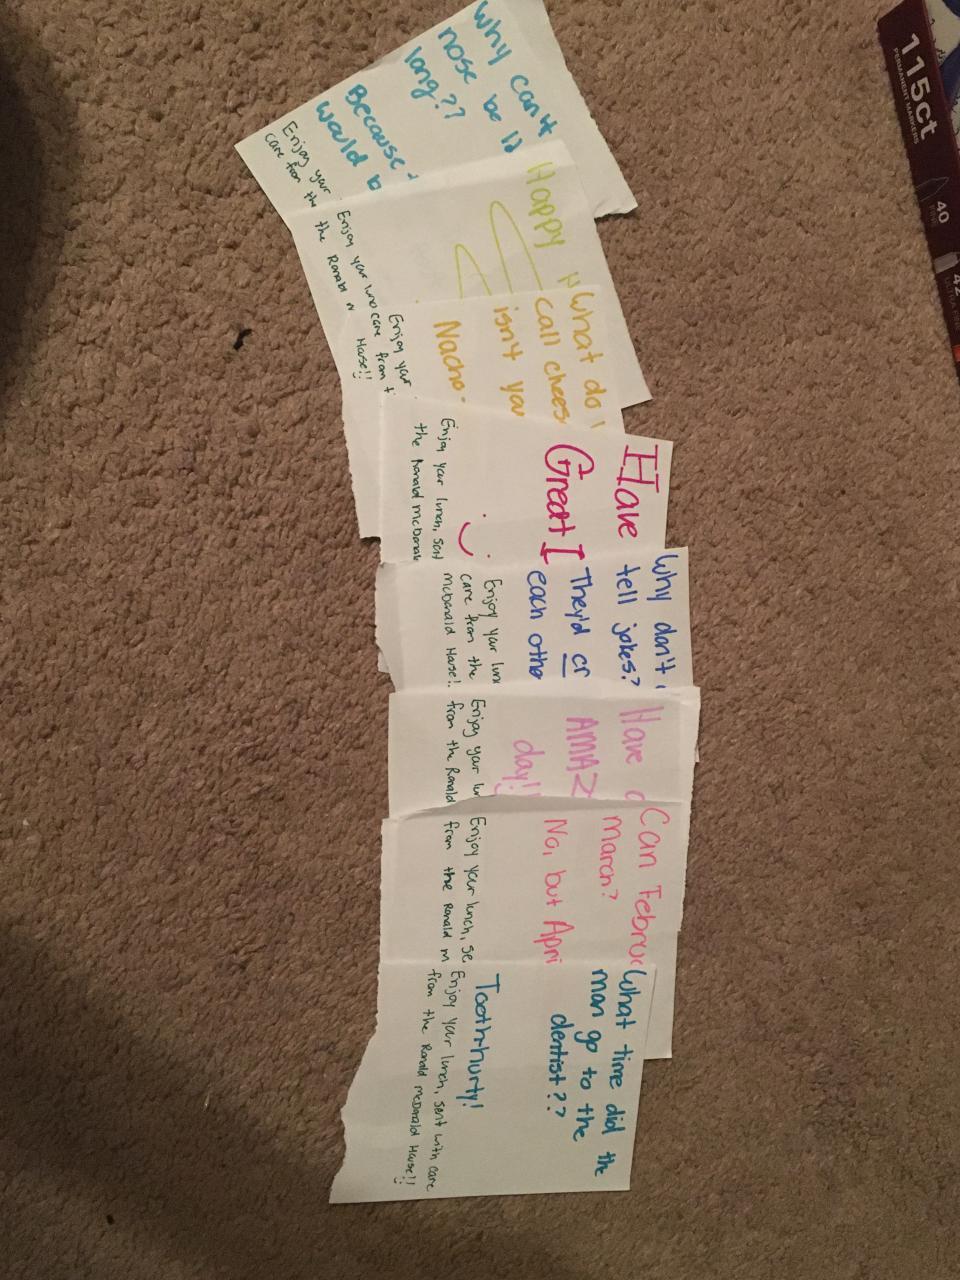 Why can't
nose be 12
long??
Because
would b
Enjoy your
care from the
Happy
Enjoy your lunc
care from t
the Ronald
House!!
What do
call chees
isn't you
Nacho
Enjoy your
Have
Great
Enjoy your lunch, sent
the Ronald McDonald
Why don't
tell jokes?
They'd cr
each othe
Enjoy your lunc
care from the
McDonald House!!
Have a
AMAZ
day!!
Enjoy your lu
from the Ronald
Can Februa
march?
No, but Apri
Enjoy your lunch, se
from the Ronald m
What time did the
man go to the
dentist??
Tooth-hurty!
Enjoy your lunch, sent with care
from the Ronald McDonald House!!
115ct
PERMANENT MARKERS
40
FINE
42